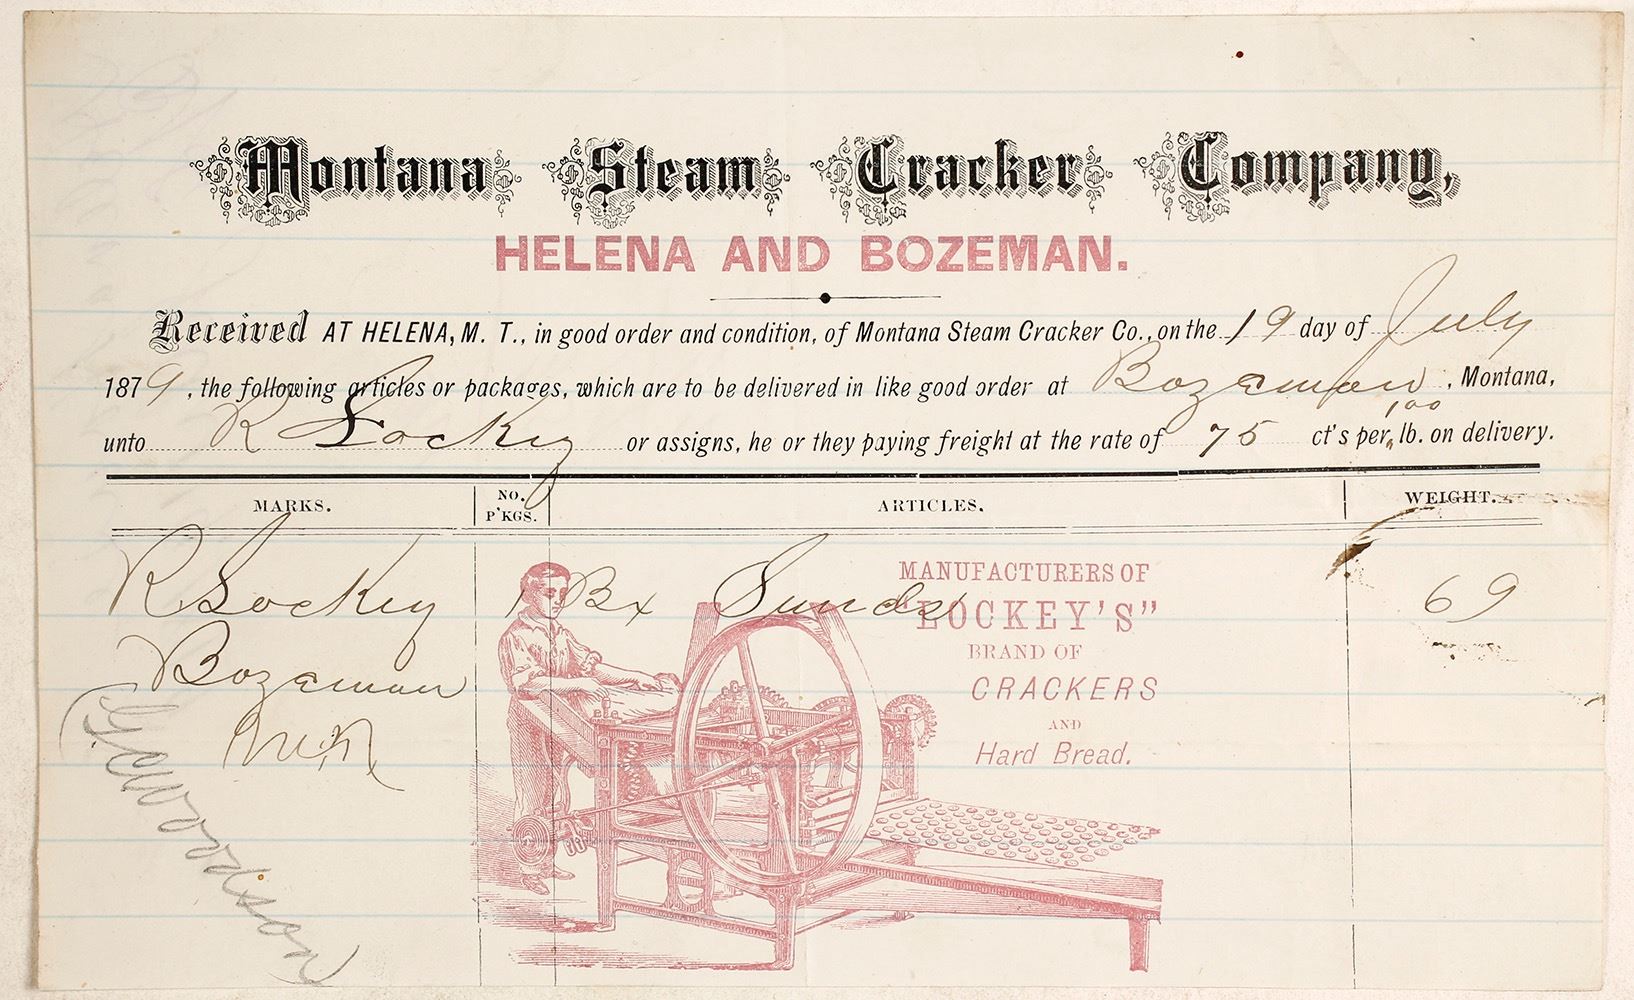 Montana Steam Cracker Company,
HELENA AND BOZEMAN.
Received AT HELENA, M. T., in good order and condition, of Montana Steam Cracker Co., on the 19 day of July
1879, the following articles or packages, which are to be delivered in like good order at Bozeman, Montana,
unto R Lockey or assigns, he or they paying freight at the rate of 75 ct's per 100 lb. on delivery.
MARKS. NO. P'KGS. ARTICLES. WEIGHT.
R Lockey 1 Bx Sunds 69
Bozeman
MANUFACTURERS OF
"LOCKEY'S"
BRAND OF
CRACKERS
AND
Hard Bread.